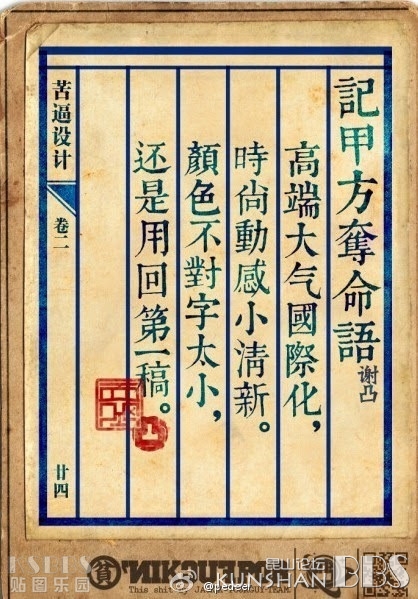 記甲方奪命語
谢凸
高端大气國際化，
時尚動感小清新。
顏色不對字太小，
还是用回第一稿。
苦逼设计
卷二
廿四
贴图乐园
昆山论坛
KUNSHAN BBS
@pedeer
This shit